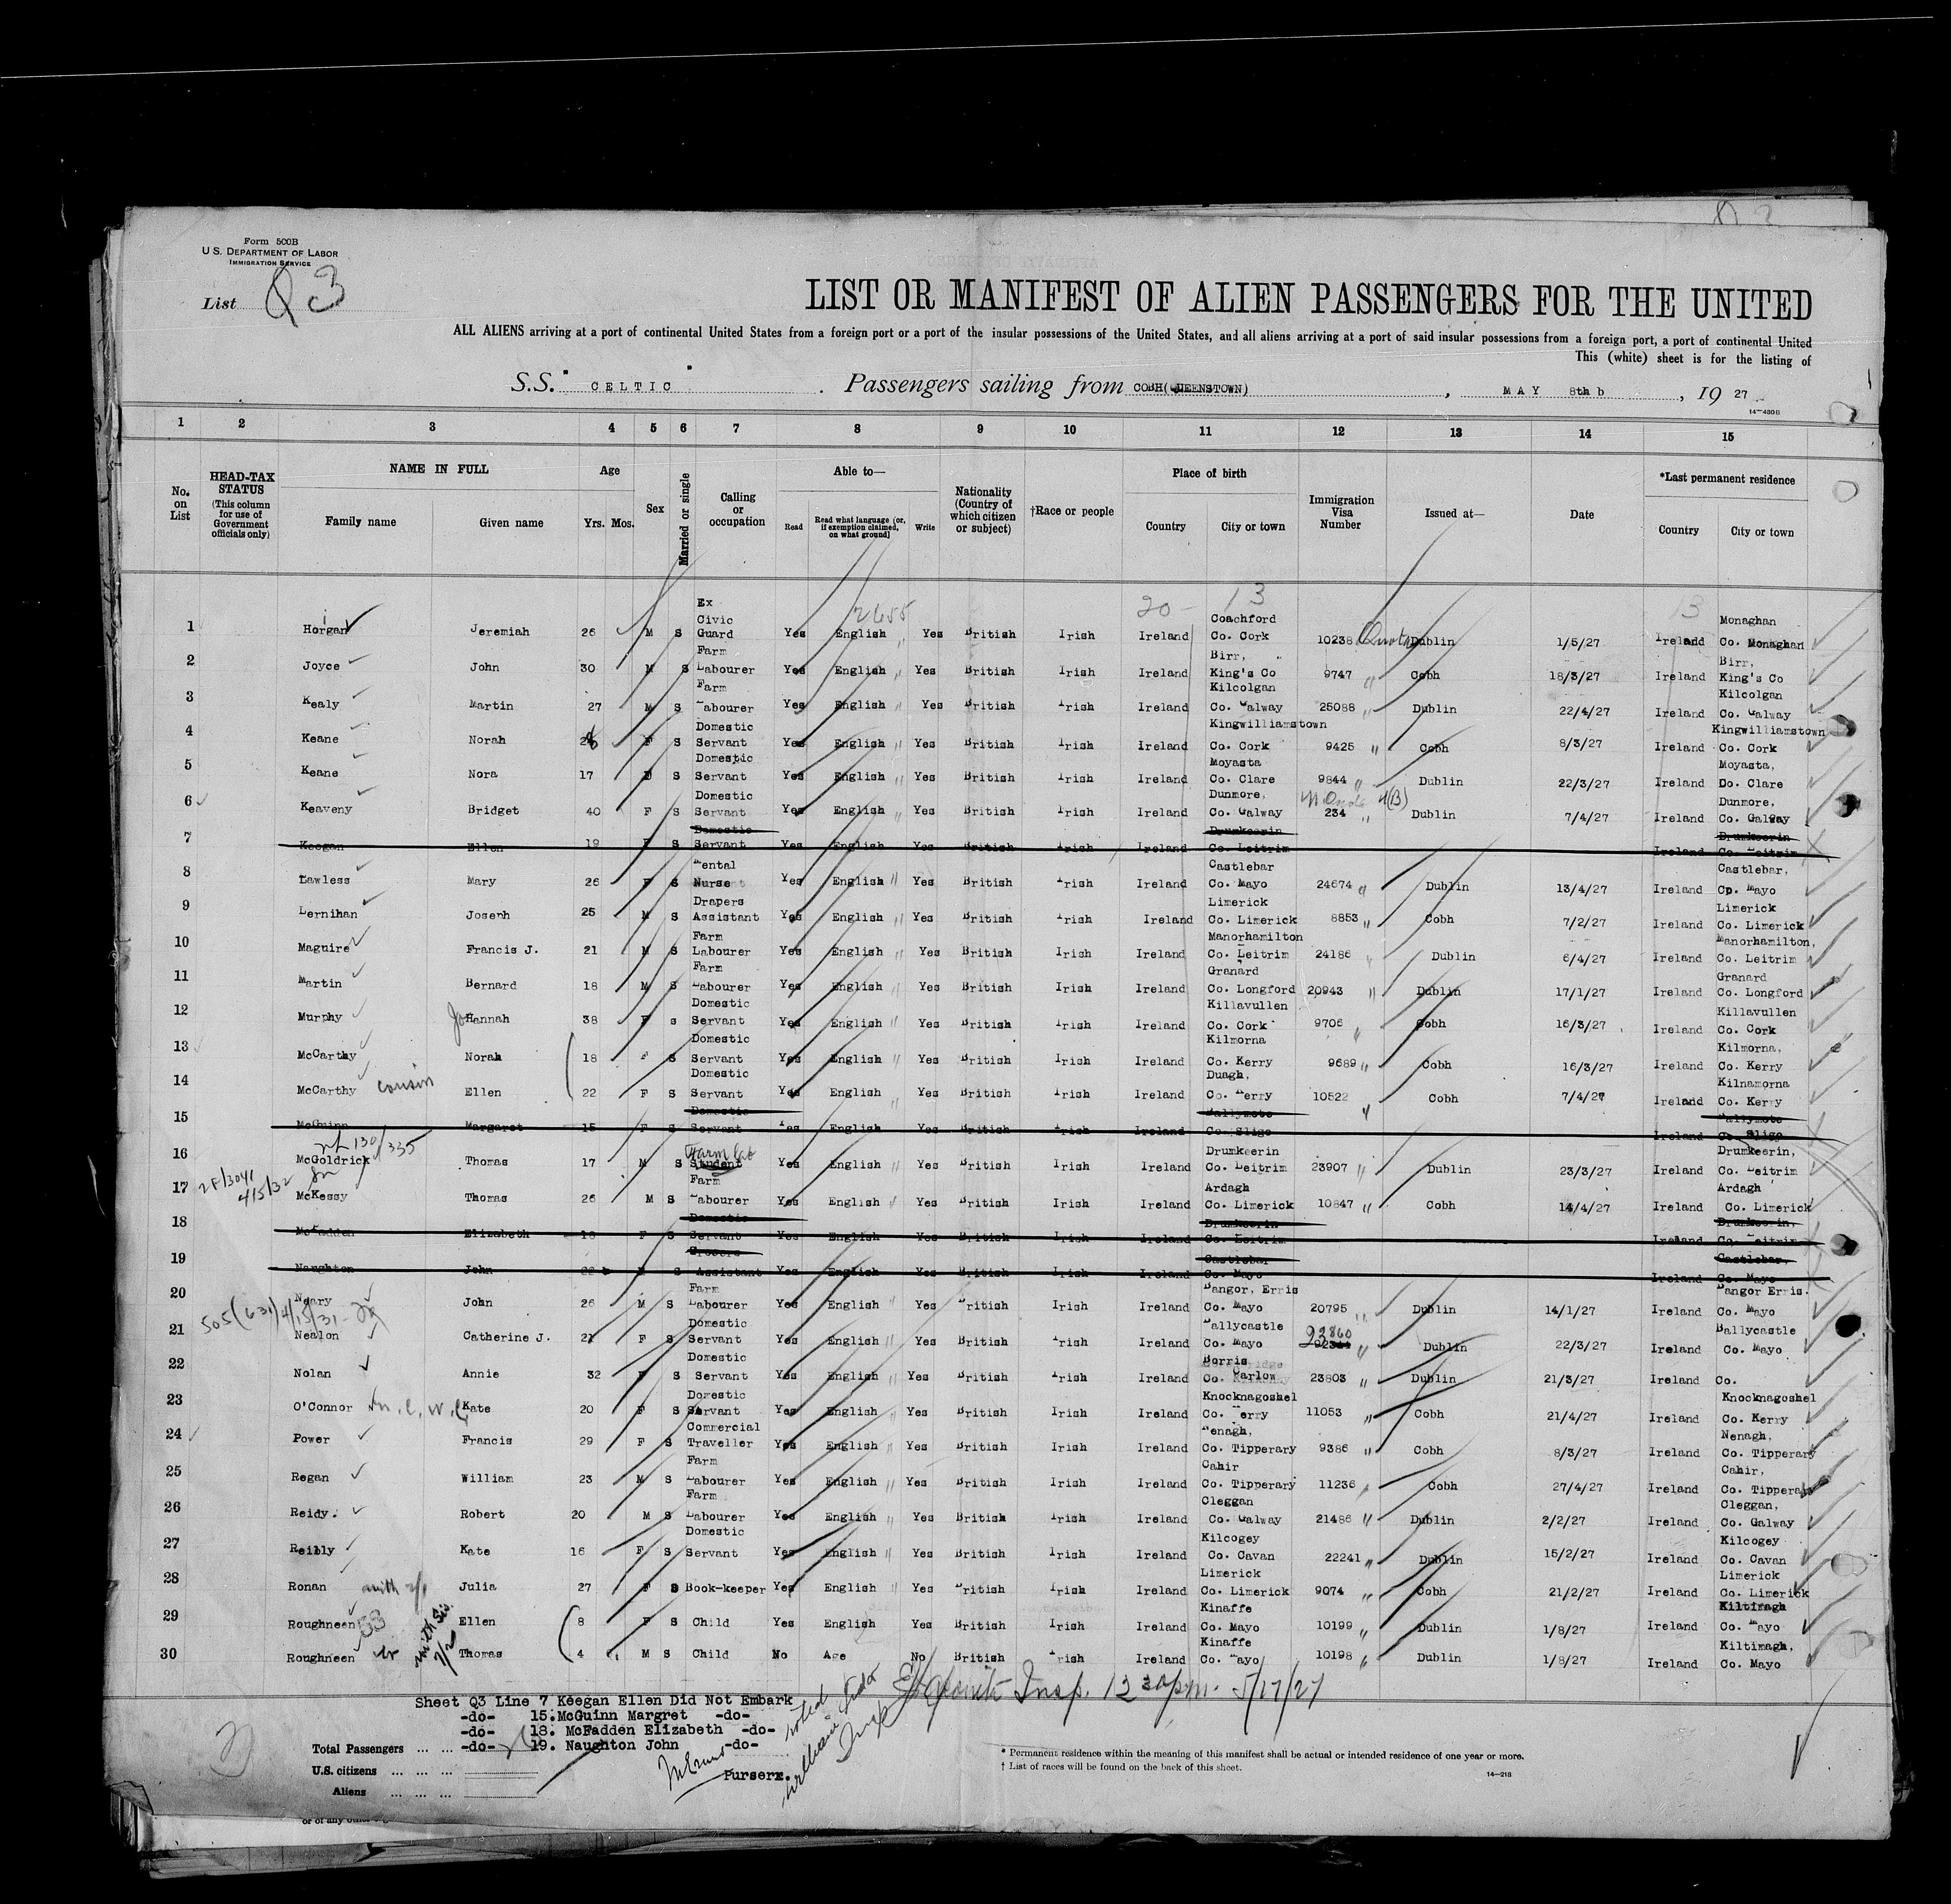 Form 500B
U.S. DEPARTMENT OF LABOR
IMMIGRATION SERVICE
List Q3
LIST OR MANIFEST OF ALIEN PASSENGERS FOR THE UNITED
ALL ALIENS arriving at a port of continental United States from a foreign port or a port of the insular possessions of the United States, and all aliens arriving at a port of said insular possessions from a foreign port, a port of continental United
This (white) sheet is for the listing of
S.S. "CELTIC". Passengers sailing from COBH(QUEENSTOWN), MAY 8th, 1927
14—430B
1 2 3 4 5 6 7 8 9 10 11 12 13 14 15
No. on List
HEAD-TAX STATUS (This column for use of Government officials only)
NAME IN FULL Family name Given name
Age Yrs. Mos.
Sex
Married or single
Calling or occupation
Able to— Read Read what language [or, if exemption claimed, on what ground] Write
Nationality (Country of which citizen or subject)
†Race or people
Place of birth Country City or town
Immigration Visa Number
Issued at—
Date
*Last permanent residence Country City or town
2655 20 - 13 13
1 Horgan Jeremiah 26 M S Ex Civic Guard Yes English Yes British Irish Ireland Coachford Co. Cork 10238 Quota Dublin 1/5/27 Ireland Monaghan Co. Monaghan
2 Joyce John 30 M S Farm Labourer Yes English Yes British Irish Ireland Birr, King's Co 9747 " Cobh 18/3/27 Ireland Birr, King's Co
3 Kealy Martin 27 M S Farm Labourer Yes English " Yes British Irish Ireland Kilcolgan Co. Galway 25088 " Dublin 22/4/27 Ireland Kilcolgan Co. Galway
4 Keane Norah F S Domestic Servant Yes English " Yes British Irish Ireland Kingwilliamstown Co. Cork 9425 " Cobh 8/3/27 Ireland Kingwilliamstown Co. Cork
5 Keane Nora 17 F S Domestic Servant Yes English " Yes British Irish Ireland Moyasta Co. Clare 9844 " Dublin 22/3/27 Ireland Moyasta, Co. Clare
6 Keaveny Bridget 40 F S Domestic Servant Yes English " Yes British Irish Ireland Dunmore, Co. Galway 234 " 4(B) Dublin 7/4/27 Ireland Dunmore, Co. Galway
7 Keegan Ellen 19 F S Domestic Servant Yes English Yes British Irish Ireland Drumkeerin Co. Leitrim Ireland Drumkeerin Co. Leitrim
8 Lawless Mary 26 F S Mental Nurse Yes English " Yes British Irish Ireland Castlebar Co. Mayo 24674 " Dublin 13/4/27 Ireland Castlebar, Co. Mayo
9 Lernihan Joseph 25 M S Drapers Assistant Yes English " Yes British Irish Ireland Limerick Co. Limerick 8853 " Cobh 7/2/27 Ireland Limerick Co. Limerick
10 Maguire Francis J. 21 M S Farm Labourer Yes English " Yes British Irish Ireland Manorhamilton Co. Leitrim 24186 " Dublin 6/4/27 Ireland Manorhamilton, Co. Leitrim
11 Martin Bernard 18 M S Farm Labourer Yes English " Yes British Irish Ireland Granard Co. Longford 20943 " Dublin 17/1/27 Ireland Granard Co. Longford
12 Murphy JoHannah 38 F s Domestic Servant Yes English " Yes British Irish Ireland Killavullen Co. Cork 9706 " Cobh 16/3/27 Ireland Killavullen Co. Cork
13 McCarthy Norah 18 F S Domestic Servant Yes English " Yes British Irish Ireland Kilmorna Co. Kerry 9689 " Cobh 16/3/27 Ireland Kilmorna, Co. Kerry
14 McCarthy cousin Ellen 22 F S Domestic Servant Yes English " Yes British Irish Ireland Duagh, Co. Kerry 10522 " Cobh 7/4/27 Ireland Kilnamorna Co. Kerry
15 McGuinn Margaret 15 F S Domestic Servant Yes English Yes British Irish Ireland Ballymote Co. Sligo Ireland Ballymote Co. Sligo
130/335
16 McGoldrick Thomas 17 M S Student Farm Lab Yes English " Yes British Irish Ireland Drumkeerin Co. Leitrim 23907 " Dublin 23/3/27 Ireland Drumkeerin, Co. Leitrim
4/5/32
17 McKessy Thomas 26 M S Farm Labourer Yes English " Yes British Irish Ireland Ardagh Co. Limerick 10847 " Cobh 14/4/27 Ireland Ardagh Co. Limerick
18 McFadden Elizabeth 18 F S Domestic Servant Yes English Yes British Irish Ireland Drumkeerin Co. Leitrim Ireland Drumkeerin, Co. Leitrim
19 Naughton John 22 M S Grocers Assistant Yes English Yes British Irish Ireland Castlebar Co. Mayo Ireland Castlebar, Co. Mayo
20 Neary John 26 M S Farm Labourer Yes English " Yes British Irish Ireland Bangor, Erris Co. Mayo 20795 " Dublin 14/1/27 Ireland Bangor Erris. Co. Mayo
505(631)4/15/31
21 Nealon Catherine J. 21 F S Domestic Servant Yes English " Yes British Irish Ireland Ballycastle Co. Mayo 23860 " Dublin 22/3/27 Ireland Ballycastle Co. Mayo
22 Nolan Annie 32 F S Domestic Servant Yes English " Yes British Irish Ireland Borris Co. Carlow 23803 " Dublin 21/3/27 Ireland Co.
23 O'Connor Kate 20 F S Domestic Servant Yes English " Yes British Irish Ireland Knocknagoshel Co. Kerry 11053 " Cobh 21/4/27 Ireland Knocknagoshel Co. Kerry
24 Power Francis 29 F S Commercial Traveller Yes English " Yes British Irish Ireland Nenagh, Co. Tipperary 9386 " Cobh 8/3/27 Ireland Nenagh, Co. Tipperary
25 Regan William 23 M S Farm Labourer Yes English " Yes British Irish Ireland Cahir Co. Tipperary 11236 " Cobh 27/4/27 Ireland Cahir, Co. Tipperary
26 Reidy. Robert 20 M S Farm Labourer Yes English " Yes British Irish Ireland Cleggan Co. Galway 21486 " Dublin 2/2/27 Ireland Cleggan, Co. Galway
27 Reilly Kate 16 F S Domestic Servant Yes English " Yes British Irish Ireland Kilcogey Co. Cavan 22241 " Dublin 15/2/27 Ireland Kilcogey Co. Cavan
28 Ronan Julia 27 F S Book-keeper Yes English " Yes British Irish Ireland Limerick Co. Limerick 9074 " Cobh 21/2/27 Ireland Limerick Co. Limerick
29 Roughneen with sis. Ellen 8 F S Child Yes English Yes British Irish Ireland Kinaffe Co. Mayo 10199 " Dublin 1/8/27 Ireland Kiltimagh Co. Mayo
30 Roughneen Thomas 4 M S Child No Age No British Irish Ireland Kinaffe Co. Mayo 10198 " Dublin 1/8/27 Ireland Kiltimagh, Co. Mayo
Insp. 12 30 pm. 5/17/27
Sheet Q3 Line 7 Keegan Ellen Did Not Embark
-do- 15. McGuinn Margret -do-
-do- 18. McFadden Elizabeth -do-
-do- 19. Naughton John -do-
Purserx.
Total Passengers ... ...
U.S. citizens ... ... ...
Aliens ... ... ...
* Permanent residence within the meaning of this manifest shall be actual or intended residence of one year or more.
† List of races will be found on the back of this sheet.
14—218